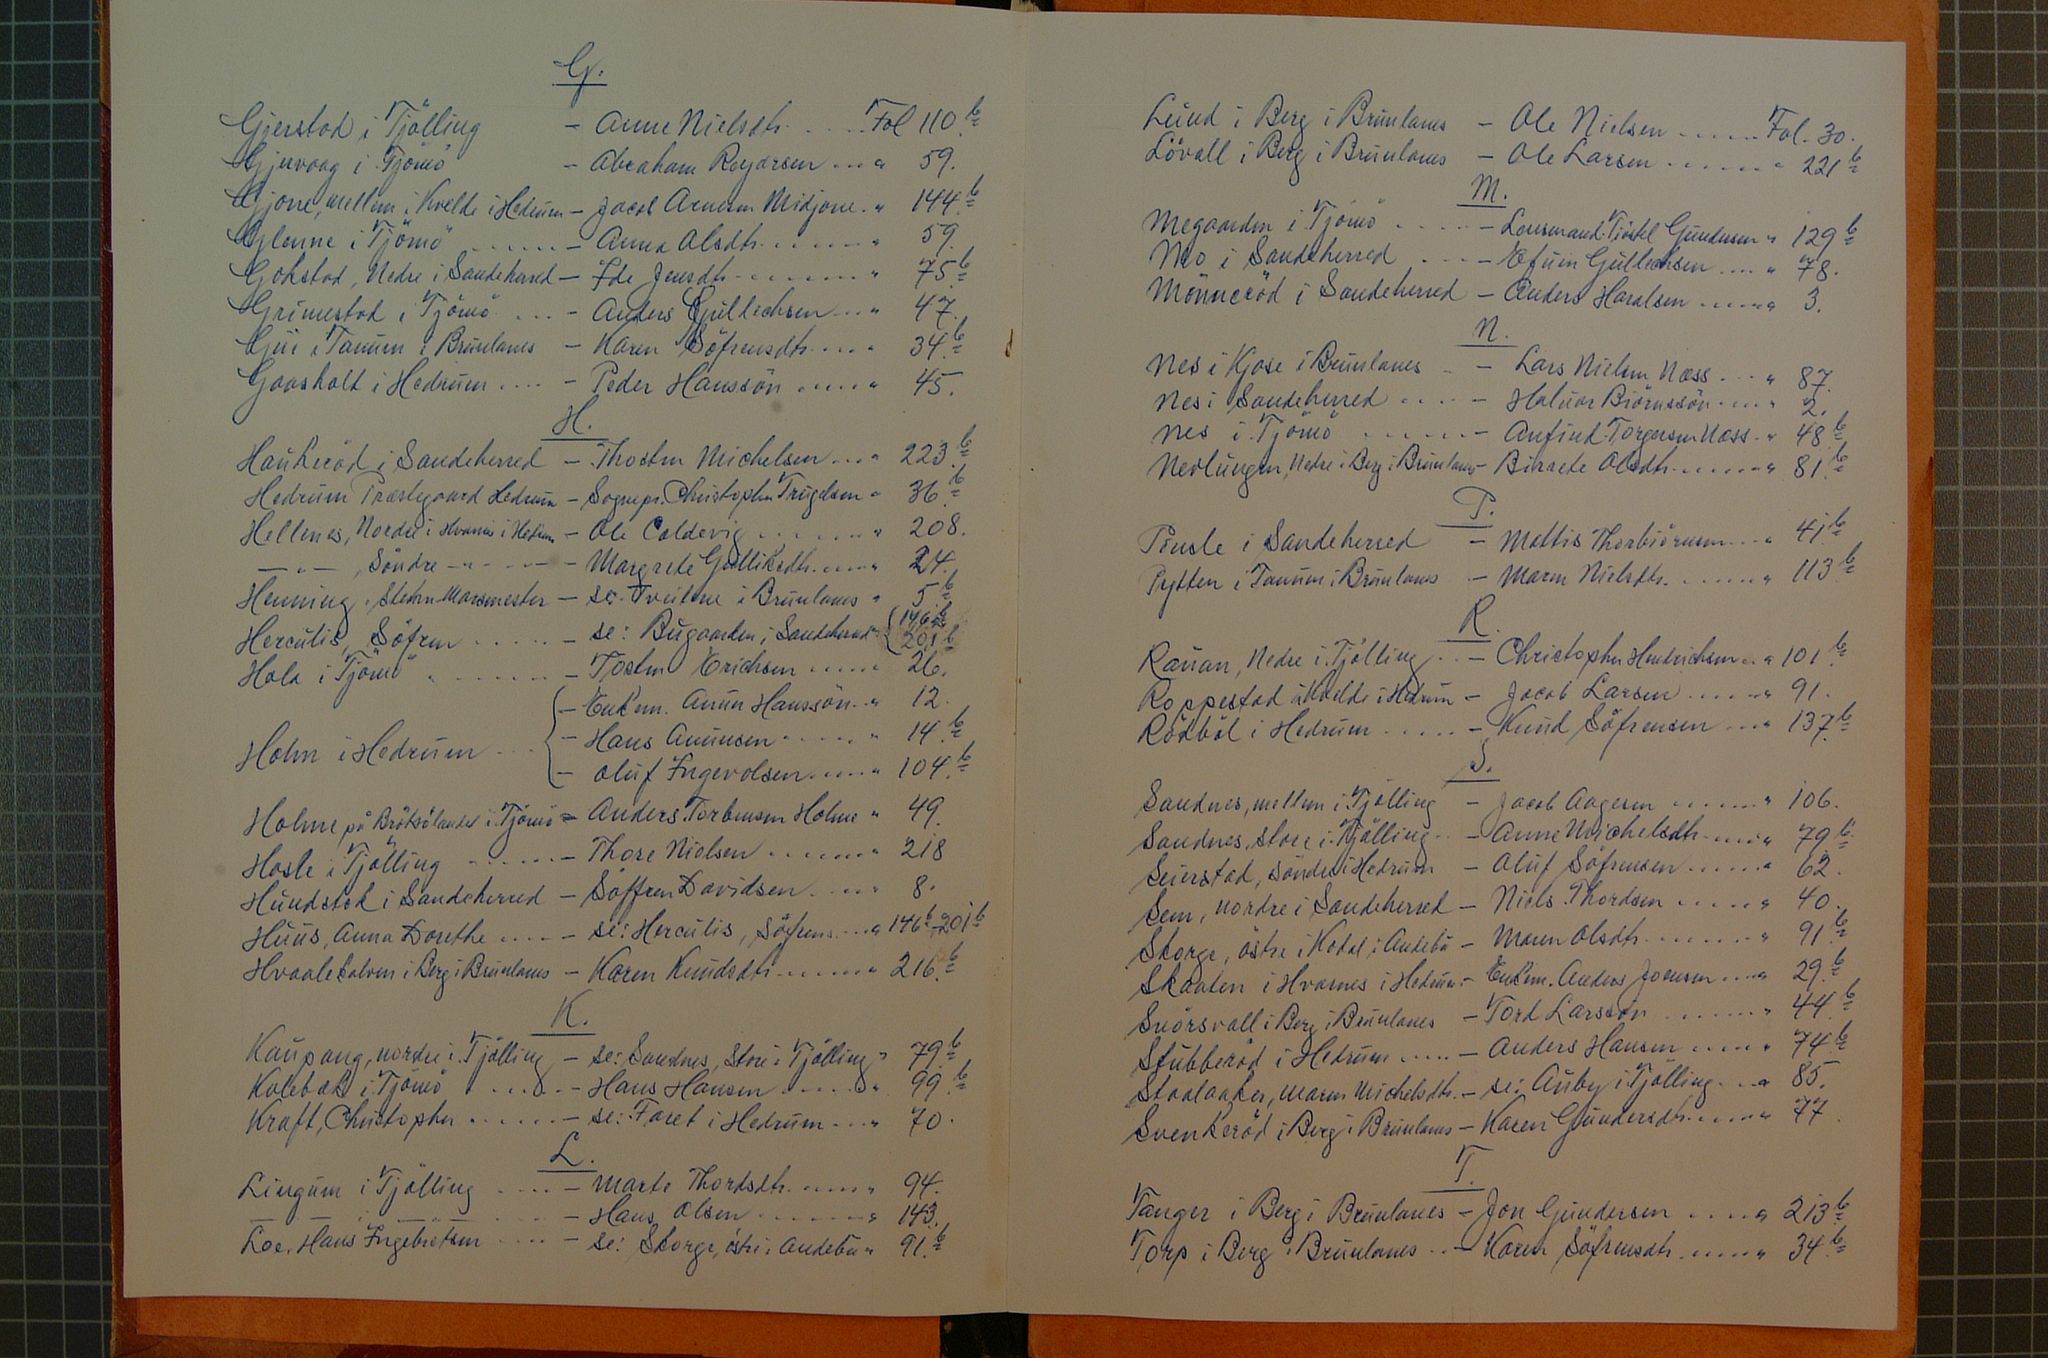 G.
Gjerstad i Tjölling - Anne Nielsdtr. .... Fol 110 b
Gjervaag i Tjömö - Abraham Reyarsen ... " 59.
Gjone, mellem i Kvelde i Hedrum - Jacob Arnesen Midjone. " 144 b
Glenne i Tjömö ..... - Anna Olsdtr. ...... " 59.
Gokstad, Nedre i Sandeherred - Ide Jensdtr. ....... " 75 b
Grimestad i Tjömö ... - Anders Gullichsen ... " 47.
Gui i Tanum i Brunlanes - Karen Söfrensdtr. ... " 34 b
Gaasholt i Hedrum .... - Peder Hanssön ..... " 45.
H.
Haukeröd i Sandeherred - Thosten Michelsen ... " 223. b
Hedrum Præstegaard Hedrum - Sognepr. Christopher Trugelsen " 36 b
Hellenes, Nordre i Hvarnes i Hedrum - Ole Coldevig ...... " 208.
— " — , Söndre - " - " - - Margrete Gulliksdtr. .... " 24.
Henning, Stehen Marsmester - se: Tveitene i Brunlanes " 5 b
Herculis, Söfren ..... - se: Bugaarden i Sandeherred " { 146 b 201 b
Hola i Tjömö ...... - Tosten Erichsen ..... " 26.
{ - Enkem. Amun Hanssön .. " 12.
Holm i Hedrum ... { - Hans Amunsen ..... " 14. b
{ - Oluf Ingevolsen ..... " 104. b
Holme på Brötsölandet i Tjömö - Anders Torbensen Holme " 49.
Hosle i Tjölling ..... - Thore Nielsen ...... " 218
Hundstok i Sandeherred - Söffren Davidsen ... " 8.
Huus, Anna Dorethe .... - se: Herculis, Söfren ... " 146 b - 201 b
Hvaalekalven i Berg i Brunlanes - Karen Knudsdtr. ...... " 216. b
K.
Kaupang, nordre i Tjölling - se: Sandnes, Store i Tjölling " 79. b
Kolebæk i Tjömö ..... - Hans Hansen ..... " 99. b
Kraft, Christopher ...... - se: Faret i Hedrum ... " 70.
L.
Lingum i Tjölling .... - Marte Thordsdtr. ..... " 94.
— " — i — " — .... - Hans Olsen ....... " 143.
Loe, Hans Ingebretsen .... - se: Skorge, östre i Andebu " 91. b
Lund i Berg i Brunlanes - Ole Nielsen ..... Fol. 30.
Lövall i Berg i Brunlanes - Ole Larsen ...... " 221 b
M.
Megaarden i Tjömö ..... - Lensmand Tjöstel Gundersen " 129 b
Mo i Sandeherred .... - Efuin Gullechsen ... " 78.
Mönneröd i Sandeherred - Anders Haralsen ..... " 3.
N.
Nes i Kjose i Brunlanes .. - Lars Nielsen Næss ... " 87.
Nes i Sandeherred ..... - Haluor Biörnssön .... " 2.
Nes i Tjömö ...... - Anfind Torgersen Næss. " 48 b
Nevlungen, Nedre i Berg i Brunlanes - Birrete Olsdtr. ...... " 81 b
P.
Pindsle i Sandeherred - Mattis Thorbiörnsen ... " 41 b
Pytten i Tanum i Brunlanes - Maren Nielsdtr. ...... " 113 b
R.
Rauan, Nedre i Tjölling ... - Christopher Hendrichsen .. " 101 b
Roppestad i Kvelde i Hedrum - Jacob Larsen ..... " 91.
Rödböl i Hedrum ..... - Knud Söfrensen ... " 137. b
S.
Sandnes, mellem i Tjölling - Jacob Aagesen ...... " 106.
Sandnes, store i Tjölling .. - Anne Michelsdtr. .... " 79. b
Seierstad, söndre i Hedrum - Oluf Söfrensen ..... " 62.
Sem, nordre i Sandeherred - Niels Thordsen ..... " 40.
Skorge, östre i Kodal i Andebu - Maren Olsdtr. ....... " 91. b
Skaaten i Hvarnes i Hedrum - Enkem. Anders Joensen .... " 29. b
Snörsvall i Berg i Brunlanes - Tord Larssön ....... " 44. b
Stubberöd i Hedrum ..... - Anders Hansen .... " 74. b
Staalaaker, Maren Michelsdtr. - se: Auby i Tjölling ... " 85.
Svenkeröd i Berg i Brunlanes - Karen Gundersdtr. ..... " 77.
T.
Tanger i Berg i Brunlanes - Jon Gundersen ..... " 213 b
Torp i Berg i Brunlanes ... - Karen Söfrensdtr. ..... " 34. b